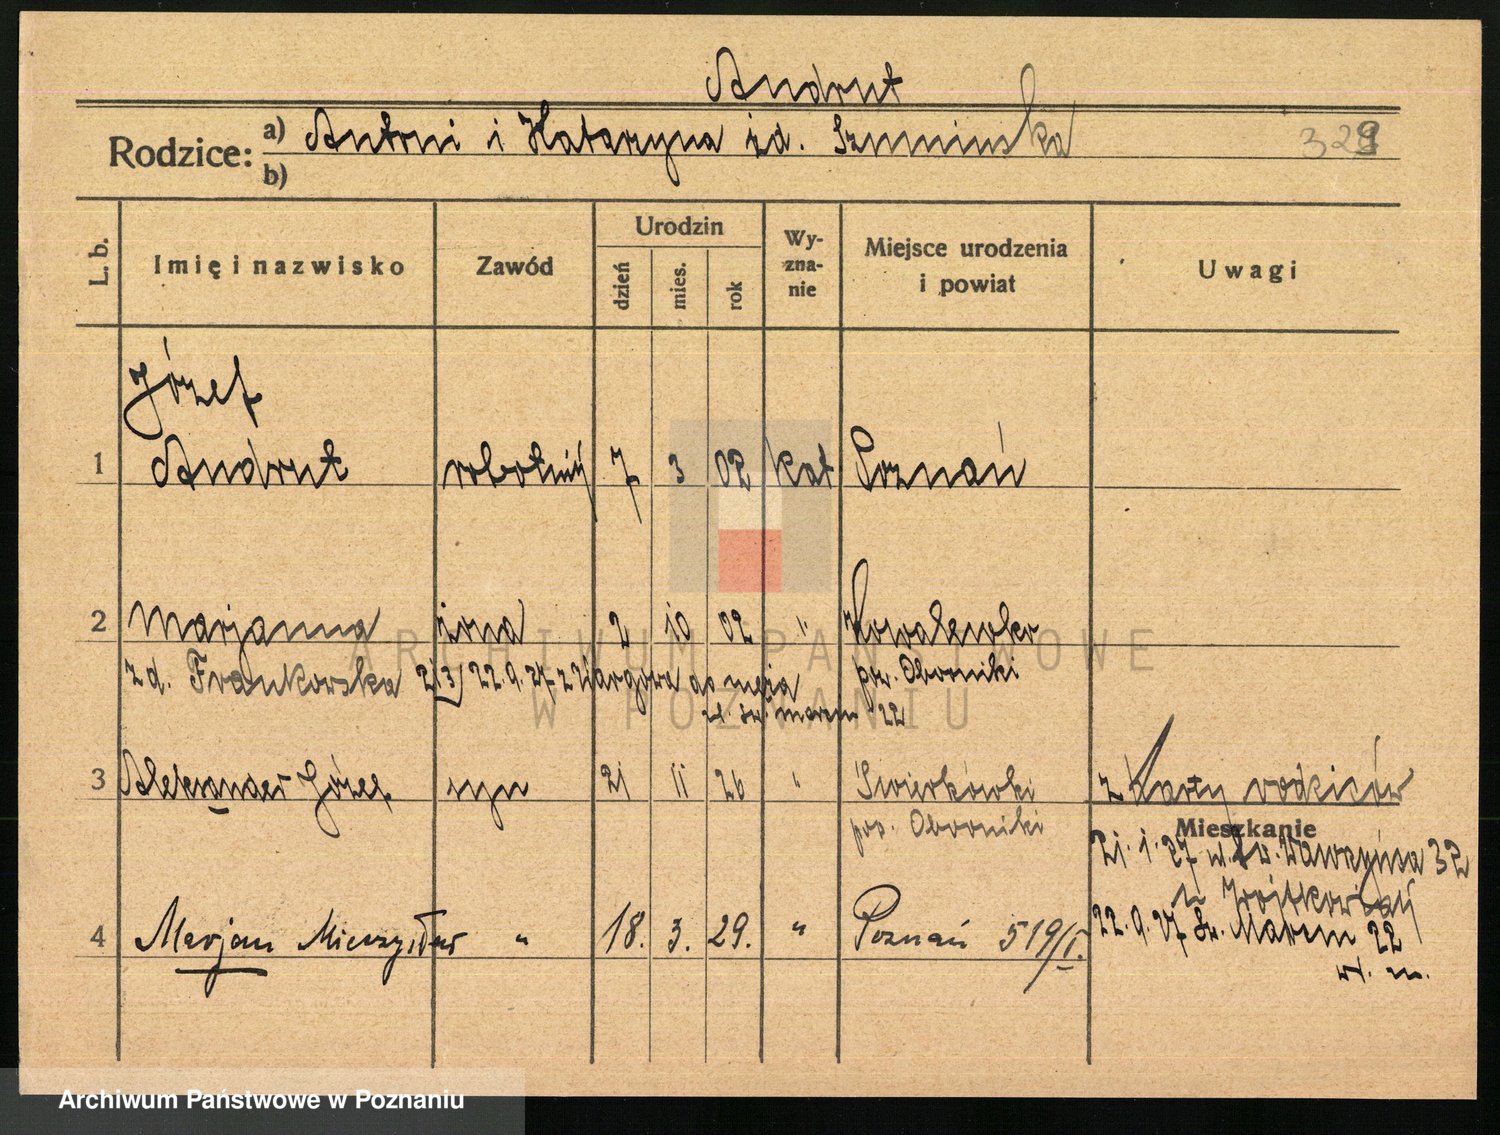 Andrut
Rodzice: a) Antoni i Katarzyna zd. Szumińska 329
b)
L. b. Imię i nazwisko Zawód Urodzin dzień mies. rok Wy-zna-nie Miejsce urodzenia i powiat Uwagi
Józef
1 Andrut robotnik 7 3 02 kat Poznań
2 Marjanna żona 2 10 02 " Kowalewko
zd. Frankowska 22.9.27 z Nargowa do męża pow. Oborniki
ul. Św. Marcin 22
3 Aleksander Józef syn 21 11 26 " Świerkówki z Karty rodziców
pow. Oborniki Mieszkanie
21.1.27 w. Św. Wawrzyńca 32
u Wojtkowiak
4 Marjan Mieczysław " 18. 3. 29. " Poznań 519/I. 22.9.27 Św. Marcin 22
w. m.
ARCHIWUM PAŃSTWOWE
W POZNANIU
Archiwum Państwowe w Poznaniu